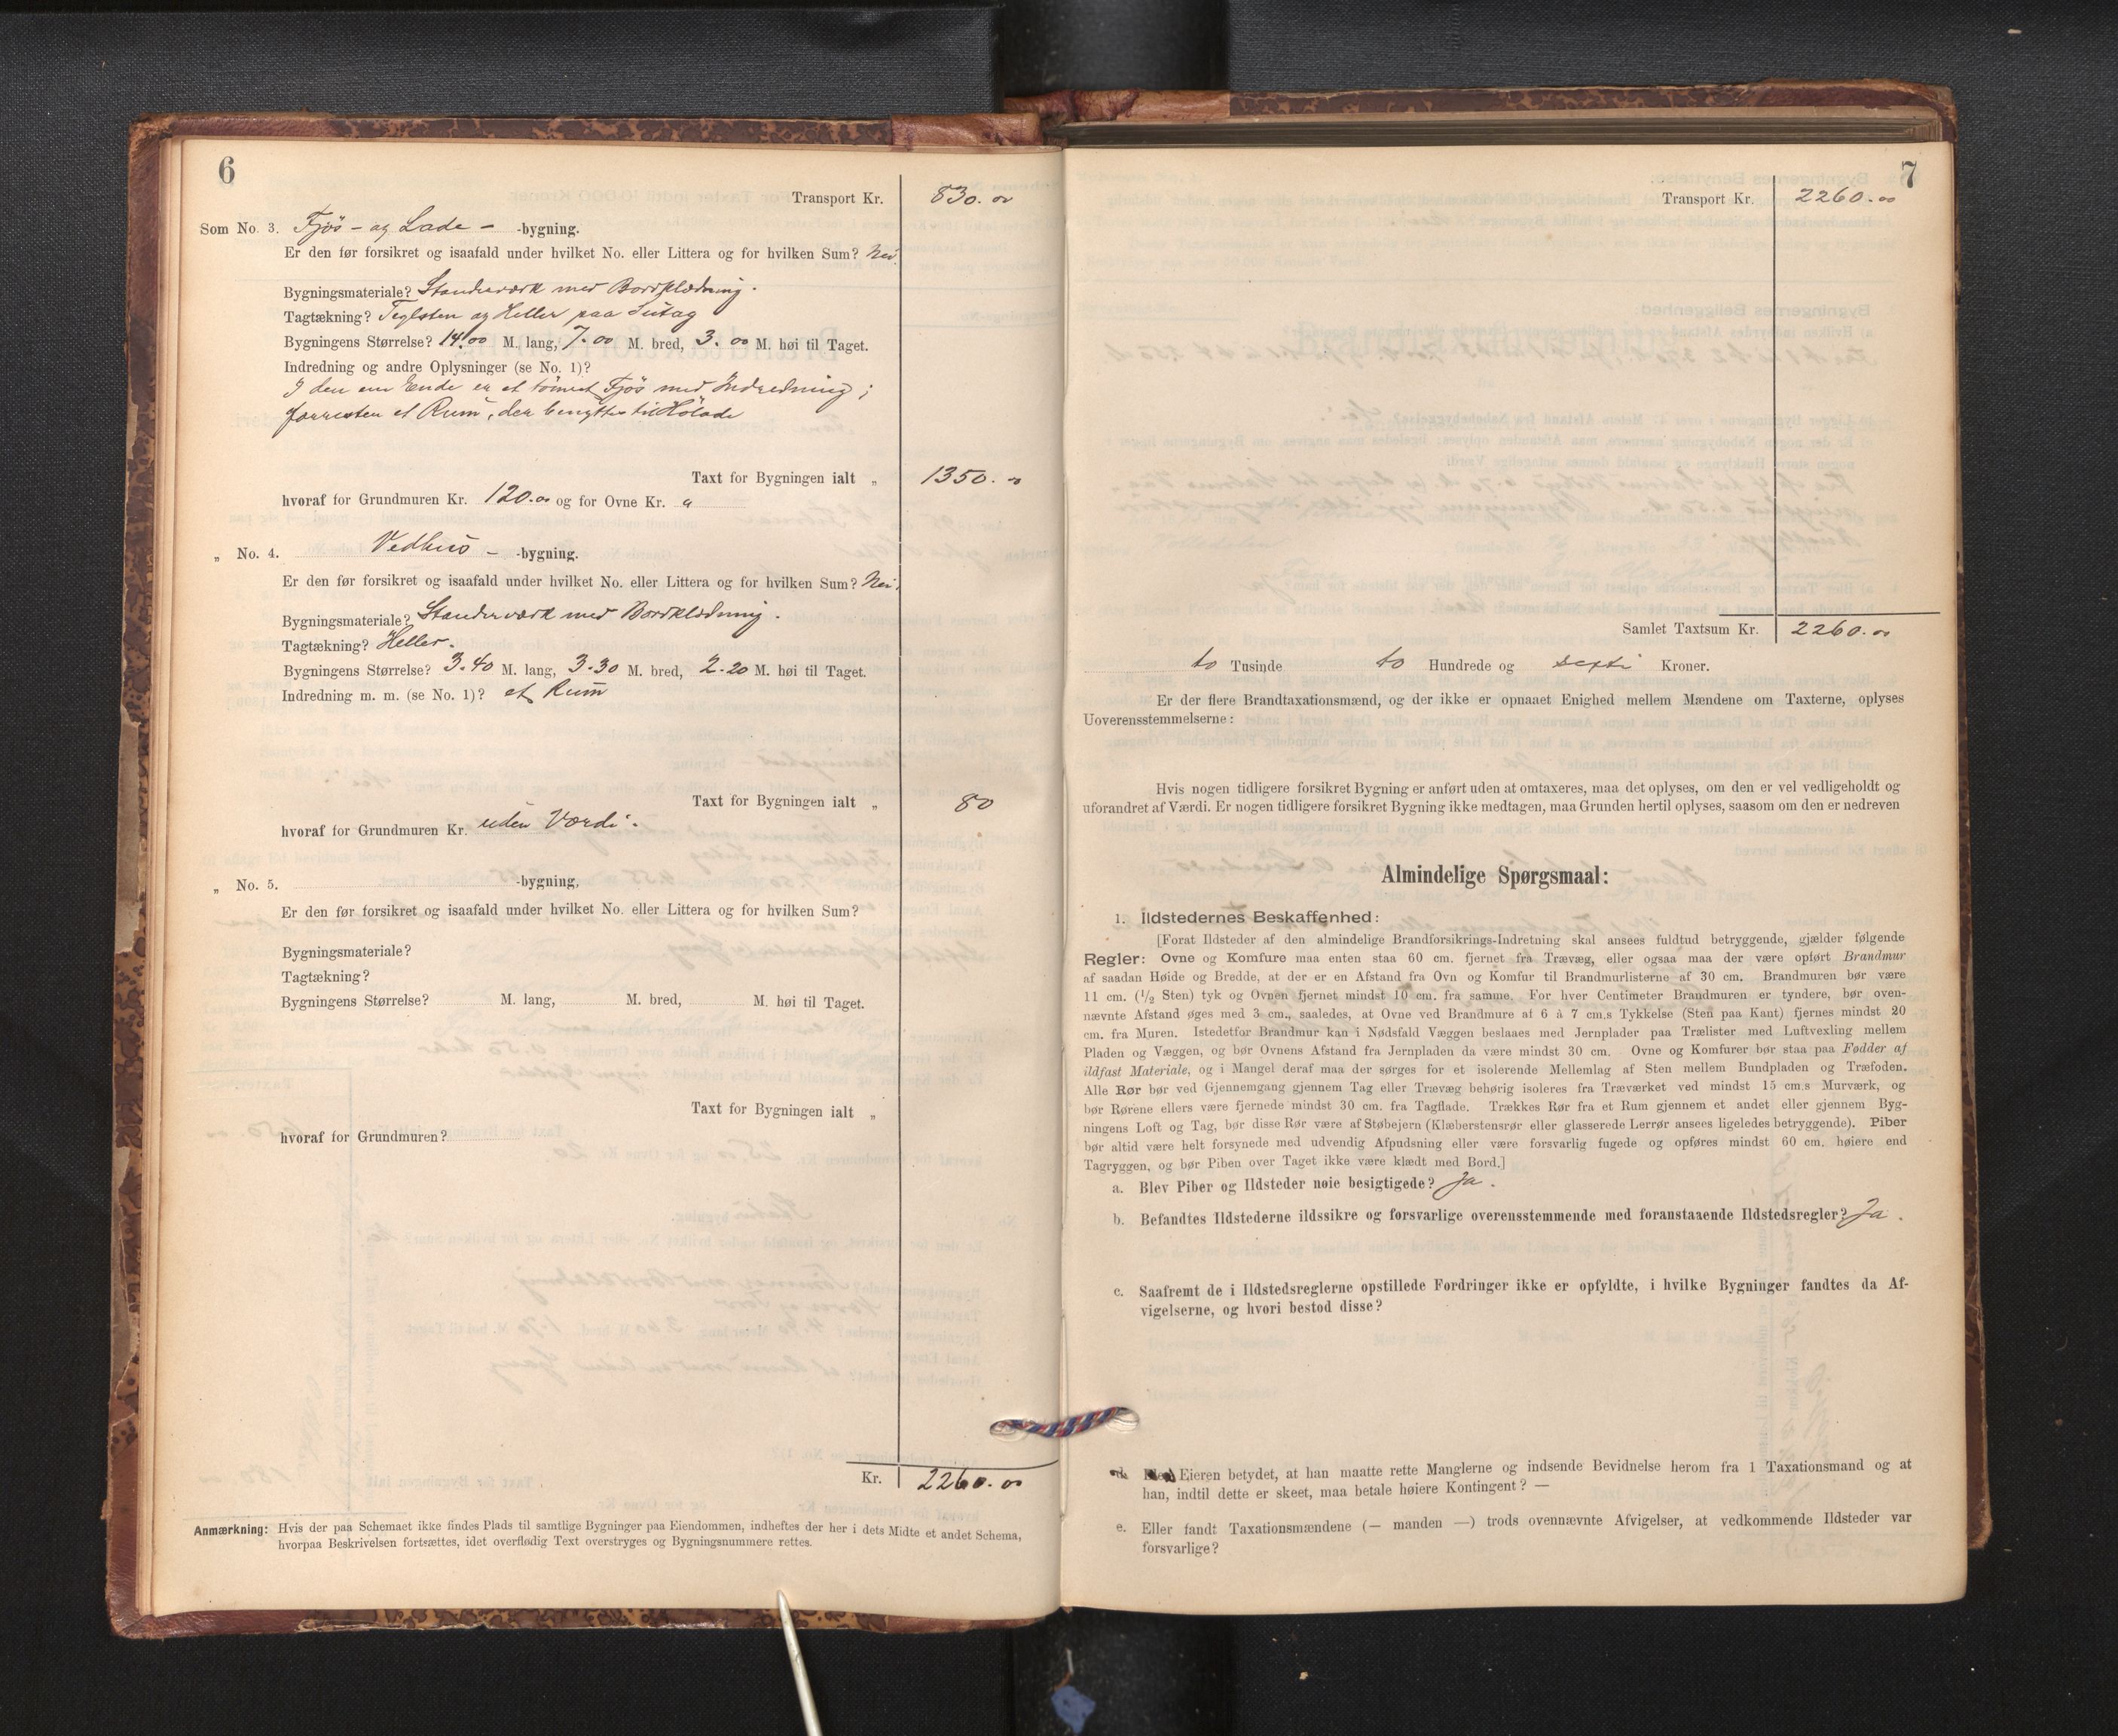 6
Transport Kr. 830.00
Som No. 3. Fjøs - og Lade - -bygning.
Er den før forsikret og isaafald under hvilket No. eller Littera og for hvilken Sum? Nei.
Bygningsmateriale? Standerværk med Bordklædning.
Tagtækning? Teglsten og Heller paa Sutag
Bygningens Størrelse? 14.00 M. lang, 7.00 M. bred, 3.00 M. høi til Taget.
Indredning og andre Oplysninger (se No. 1)?
I den ene Ende er et tømret Fjøs med Indredning;
forresten et Rum, der benyttes til Hølade
Taxt for Bygningen ialt „ 1350.00
hvoraf for Grundmuren Kr. 120.00 og for Ovne Kr. „
„ No. 4. Vedhus - -bygning.
Er den før forsikret og isaafald under hvilket No. eller Littera og for hvilken Sum? Nei.
Bygningsmateriale? Standerværk med Bordklædning.
Tagtækning? Heller.
Bygningens Størrelse? 3.40 M. lang, 3.30 M. bred, 2.20 M. høi til Taget.
Indredning m. m. (se No. 1)? et Rum
Taxt for Bygningen ialt „ 80
hvoraf for Grundmuren Kr. uden Værdi.
„ No. 5. -bygning,
Er den før forsikret og isaafald under hvilket No. eller Littera og for hvilken Sum?
Bygningsmateriale?
Tagtækning?
Bygningens Størrelse? M. lang, M. bred, M. høi til Taget.
Taxt for Bygningen ialt „
hvoraf for Grundmuren?
Kr. 2260.00
Anmærkning: Hvis der paa Schemaet ikke findes Plads til samtlige Bygninger paa Eiendommen, indheftes der her i dets Midte et andet Schema,
hvorpaa Beskrivelsen fortsættes, idet overflødig Text overstryges og Bygningsnummere rettes.
7
Transport Kr. 2260.00
Samlet Taxtsum Kr. 2260.00
to Tusinde to Hundrede og sexti Kroner.
Er der flere Brandtaxationsmænd, og der ikke er opnaaet Enighed mellem Mændene om Taxterne, oplyses
Uoverensstemmelserne:
Hvis nogen tidligere forsikret Bygning er anført uden at omtaxeres, maa det oplyses, om den er vel vedligeholdt og
uforandret af Værdi. Er nogen tidligere forsikret Bygning ikke medtagen, maa Grunden hertil oplyses, saasom om den er nedreven
Almindelige Spørgsmaal:
1. Ildstedernes Beskaffenhed:
[Forat Ildsteder af den almindelige Brandforsikrings-Indretning skal ansees fuldtud betryggende, gjælder følgende
Regler: Ovne og Komfure maa enten staa 60 cm. fjernet fra Trævæg, eller ogsaa maa der være opført Brandmur
af saadan Høide og Bredde, at der er en Afstand fra Ovn og Komfur til Brandmurlisterne af 30 cm. Brandmuren bør være
11 cm. (1/2 Sten) tyk og Ovnen fjernet mindst 10 cm. fra samme. For hver Centimeter Brandmuren er tyndere, bør oven-
nævnte Afstand øges med 3 cm., saaledes, at Ovne ved Brandmure af 6 à 7 cm.s Tykkelse (Sten paa Kant) fjernes mindst 20
cm. fra Muren. Istedetfor Brandmur kan i Nødsfald Væggen beslaaes med Jernplader paa Trælister med Luftvexling mellem
Pladen og Væggen, og bør Ovnens Afstand fra Jernpladen da være mindst 30 cm. Ovne og Komfurer bør staa paa Fødder af
ildfast Materiale, og i Mangel deraf maa der sørges for et isolerende Mellemlag af Sten mellem Bundpladen og Træfoden.
Alle Rør bør ved Gjennemgang gjennem Tag eller Trævæg behørig isoleres fra Træværket ved mindst 15 cm.s Murværk, og
bør Rørene ellers være fjernede mindst 30 cm. fra Tagflade. Trækkes Rør fra et Rum gjennem et andet eller gjennem Byg-
ningens Loft og Tag, bør disse Rør være af Støbejern (Klæberstensrør eller glasserede Lerrør ansees ligeledes betryggende). Piber
bør altid være helt forsynede med udvendig Afpudsning eller være forsvarlig fugede og opføres mindst 60 cm. høiere end
Tagryggen, og bør Piben over Taget ikke være klædt med Bord.]
a. Blev Piber og Ildsteder nøie besigtigede? Ja.
b. Befandtes Ildstederne ildssikre og forsvarlige overensstemmende med foranstaaende Ildstedsregler? Ja.
c. Saafremt de i Ildstedsreglerne opstillede Fordringer ikke er opfyldte, i hvilke Bygninger fandtes da Af-
vigelserne, og hvori bestod disse?
Eieren betydet, at han maatte rette Manglerne og indsende Bevidnelse herom fra 1 Taxationsmand og at
han, indtil dette er skeet, maa betale høiere Kontingent? —
e. Eller fandt Taxationsmændene (— manden —) trods ovennævnte Afvigelser, at vedkommende Ildsteder var
forsvarlige?